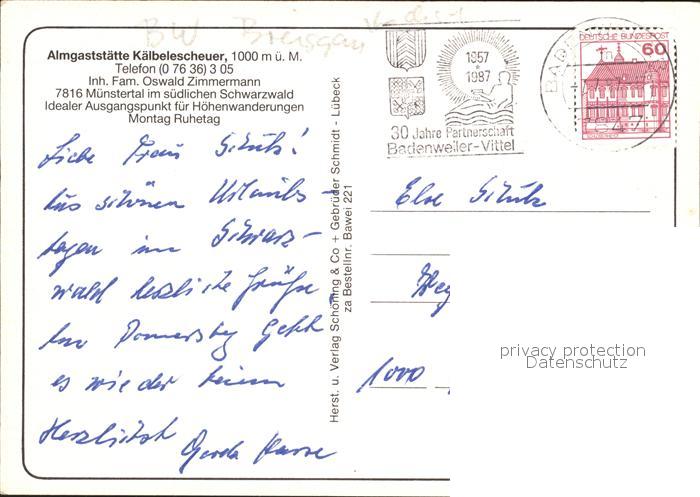 BW Breisgau
Almgaststätte Kälbelescheuer, 1000 m ü. M.
Telefon (0 76 36) 3 05
Inh. Fam. Oswald Zimmermann
7816 Münstertal im südlichen Schwarzwald
Idealer Ausgangspunkt für Höhenwanderungen
Montag Ruhetag
Liebe Frau Schulz!
Aus schönen Urlaubs-
tagen im Schwarz-
wald herzliche Grüße
Am Donnerstag geht
es wieder heim
Herzlichst Gerda
Herst. u. Verlag Schöning & Co + Gebrüder Schmidt - Lübeck
za Bestellnr. Bawei 221
1957
1987
30 Jahre Partnerschaft
Badenweiler-Vittel
DEUTSCHE BUNDESPOST
60
Else Schulz
1000
privacy protection
Datenschutz